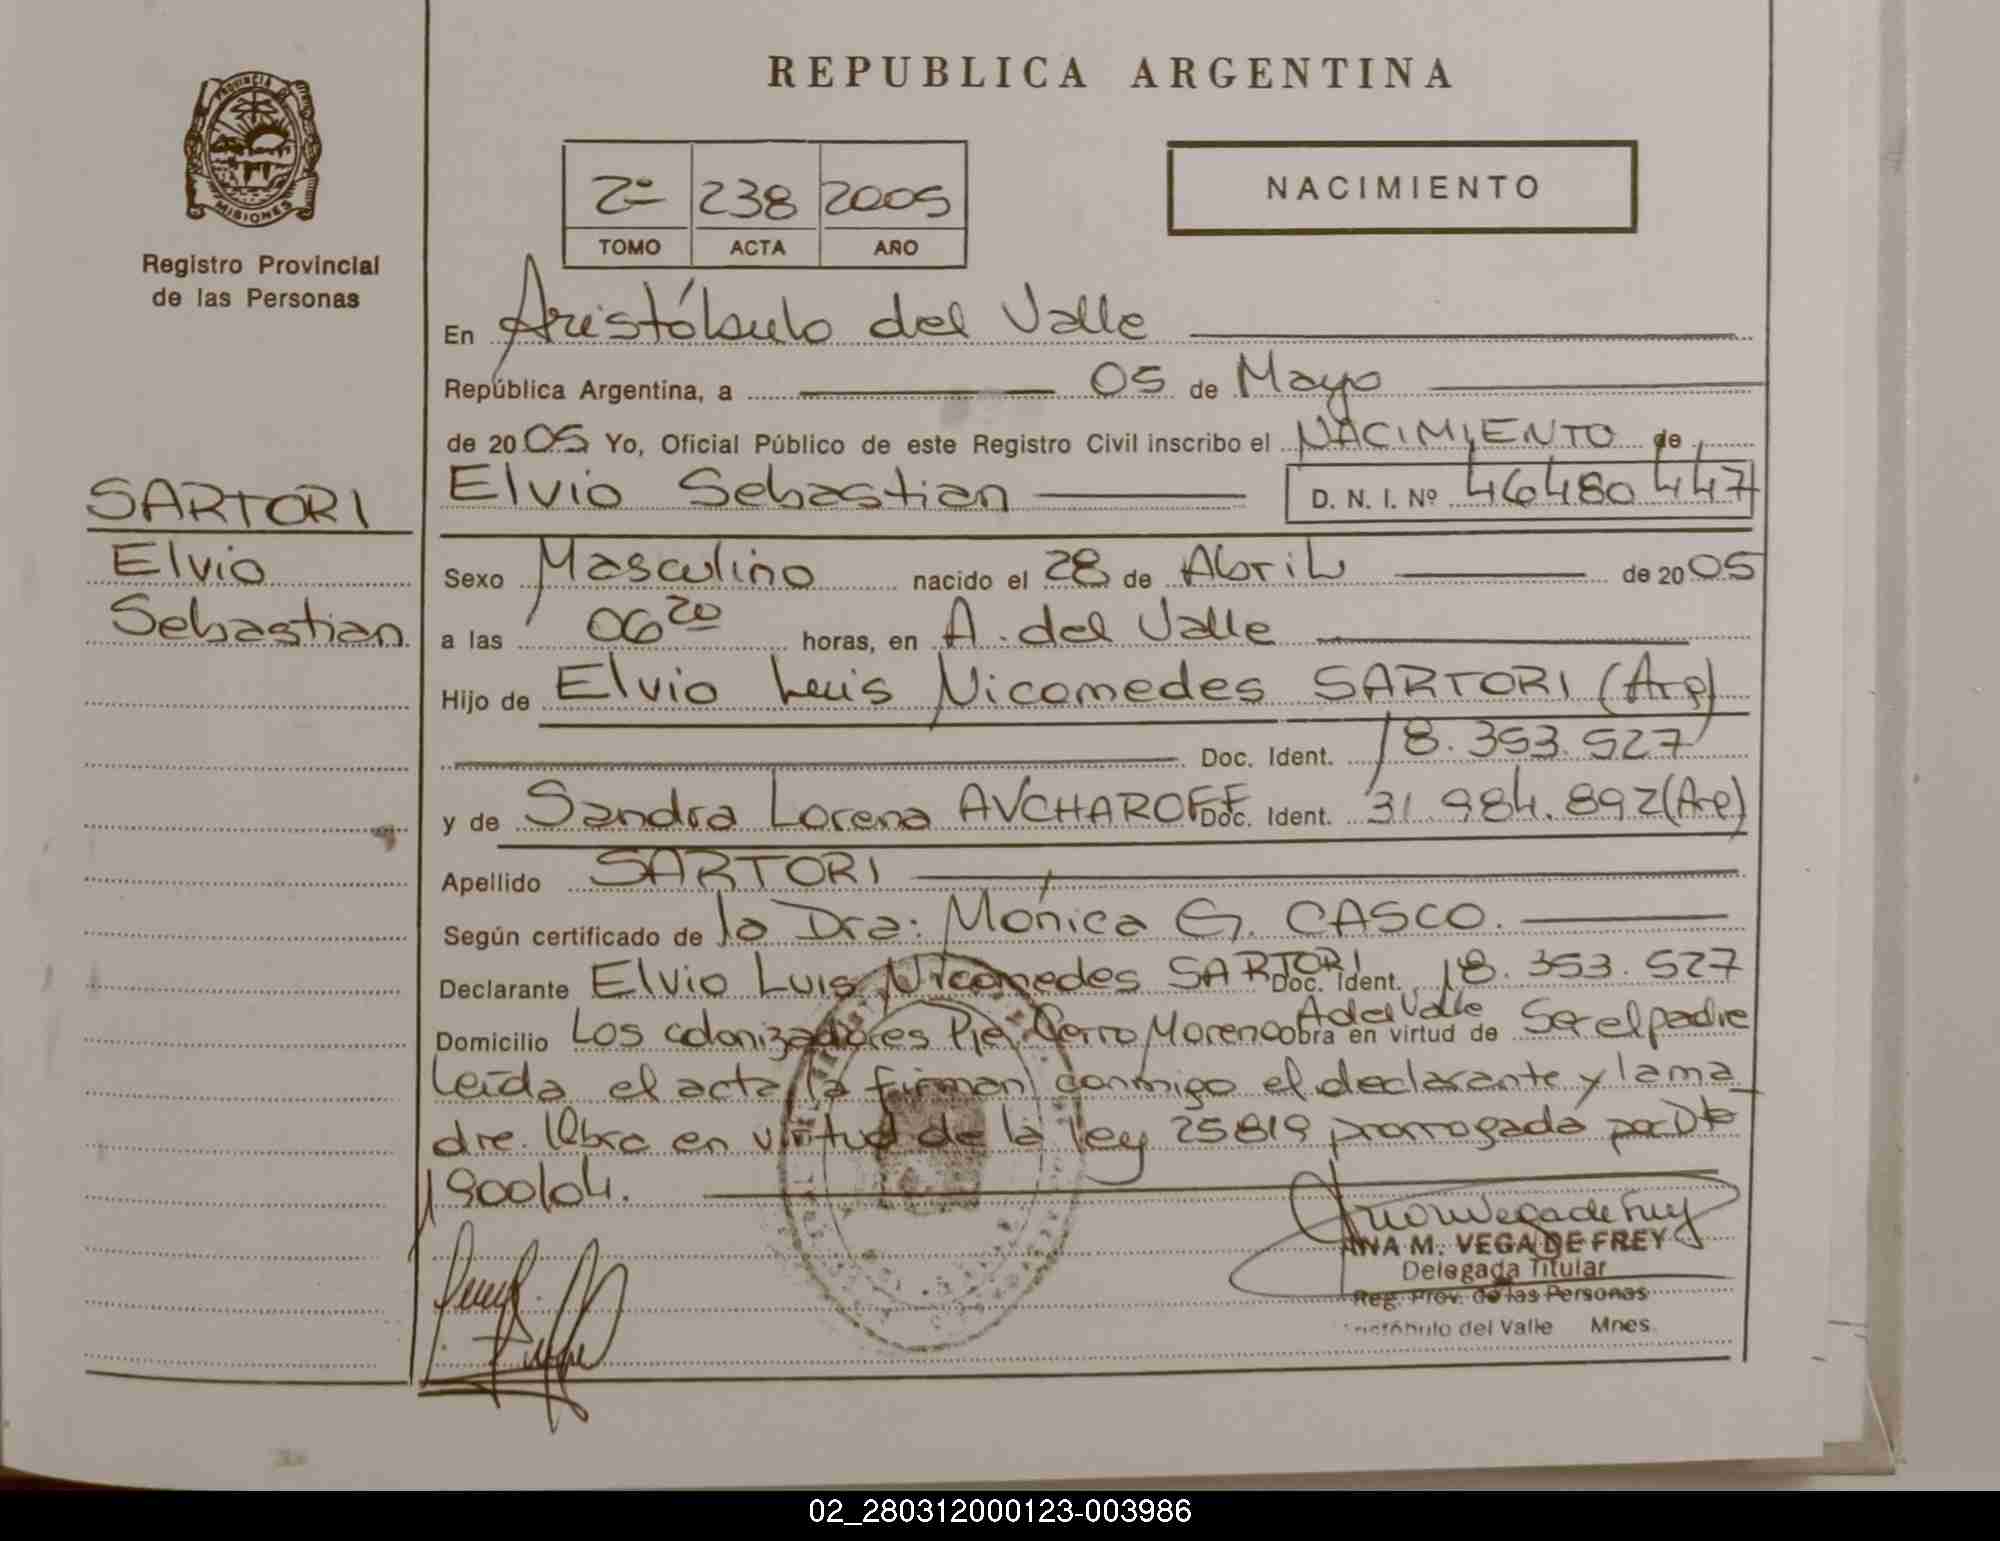 REPUBLICA ARGENTINA
PROVINCIA DE
MISIONES
Registro Provincial
de las Personas
2º 238 2005
TOMO ACTA AÑO
NACIMIENTO
En Aristóbulo del Valle
República Argentina, a 05 de Mayo
de 2005 Yo, Oficial Público de este Registro Civil inscribo el NACIMIENTO de
Elvio Sebastian D. N. I. Nº 46480447
SARTORI
Elvio
Sebastian
Sexo Masculino nacido el 28 de Abril de 2005
a las 06 20 horas, en A. del Valle
Hijo de Elvio Luis Nicomedes SARTORI (Arg)
Doc. Ident. 18.353.527
y de Sandra Lorena AVCHAROFF Doc. Ident. 31.984.892 (Arg)
Apellido SARTORI
Según certificado de la Dra: Mónica G. CASCO.
Declarante Elvio Luis Nicomedes SARTORI Doc. Ident. 18.353.527
Domicilio Los colonizadores Pje Cerro Moreno A del Valle obra en virtud de Ser el padre
Leída el acta la firman conmigo el declarante y la ma
dre. Obro en virtud de la ley 25819 prorrogada por Dto
1900/04.
ANA M. VEGA DE FREY
Delegada Titular
Reg. Prov. de las Personas
Aristóbulo del Valle Mnes.
02_280312000123-003986